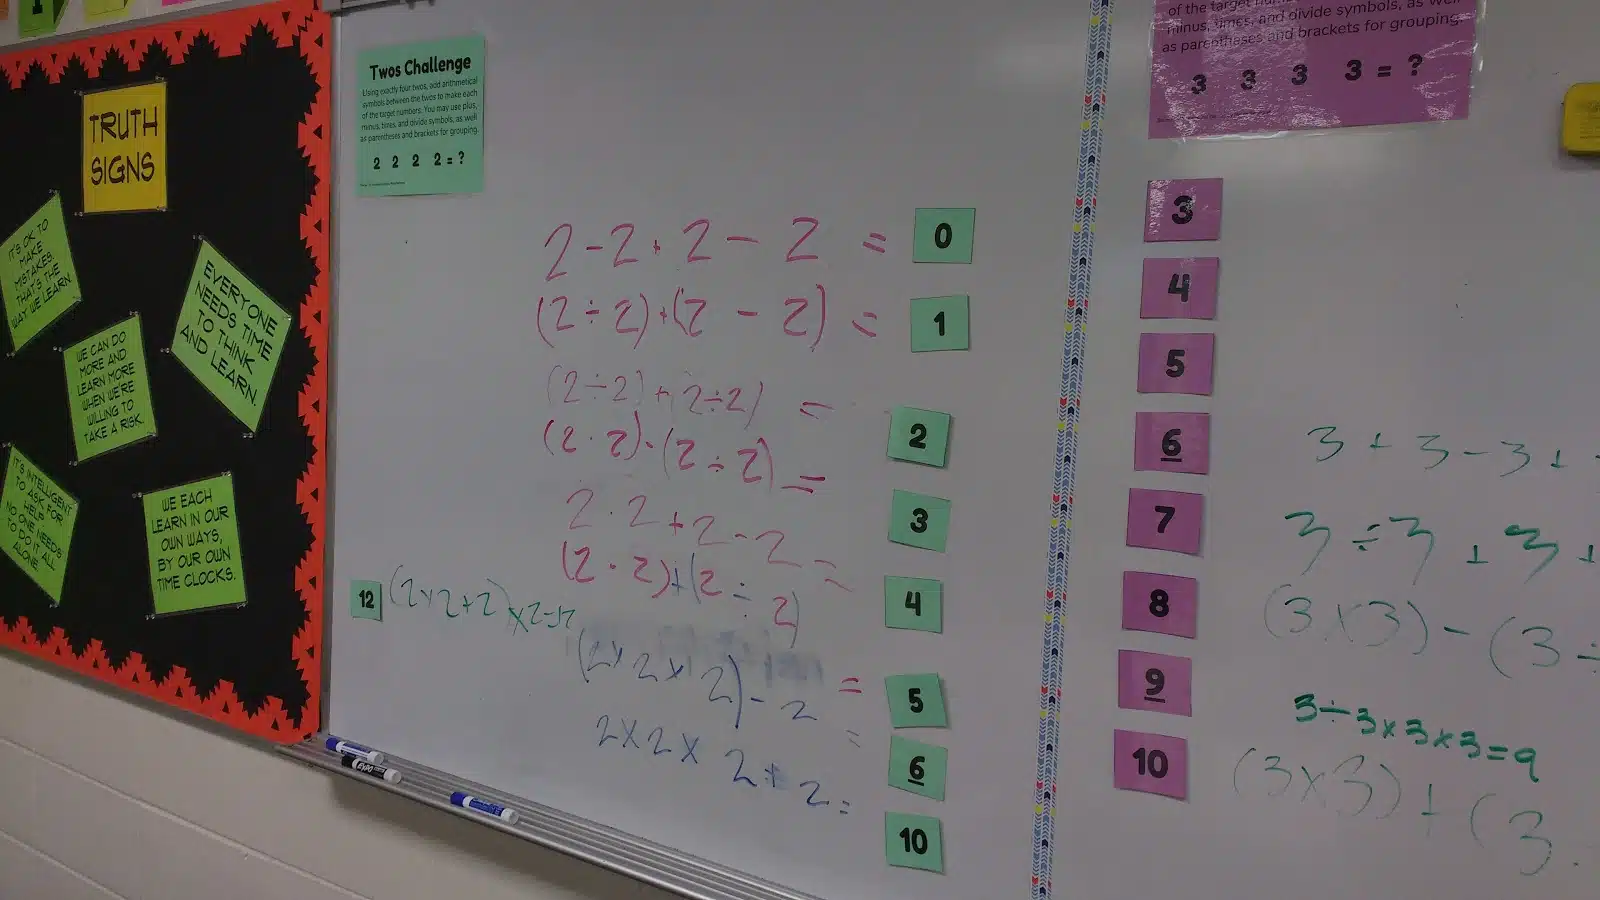 TRUTH
SIGNS
IT'S OK TO
MAKE
MISTAKES.
THAT'S THE
WAY WE LEARN.
EVERYONE
NEEDS TIME
TO THINK
AND LEARN.
WE CAN DO
MORE AND
LEARN MORE
WHEN WE'RE
WILLING TO
TAKE A RISK.
IT'S INTELLIGENT
TO ASK FOR
HELP
NO ONE NEEDS
TO DO IT ALL
ALONE.
WE EACH
LEARN IN OUR
OWN WAYS,
BY OUR OWN
TIME CLOCKS.
Twos Challenge
Using exactly four twos, add arithmetical
symbols between the twos to make each
of the target numbers. You may use plus,
minus, times, and divide symbols, as well
as parentheses and brackets for grouping.
2 2 2 2 = ?
2 - 2 + 2 - 2 = 0
(2 ÷ 2) + (2 - 2) = 1
(2 ÷ 2) + (2 ÷ 2) = 2
(2 · 2) - (2 ÷ 2) = 3
2 · 2 + 2 - 2 = 4
(2 · 2) + (2 ÷ 2) = 5
(2 x 2 x 2) - 2 = 6
2 x 2 x 2 + 2 = 10
12 (2 x 2 + 2) x 2 = 12
of the target
minus, times, and divide symbols, as well
as parentheses and brackets for grouping.
3 3 3 3 = ?
3
4
5
6 3 + 3 - 3 +
7 3 ÷ 3 + 3 +
8 (3 x 3) - (3 ÷
9 3 ÷ 3 x 3 x 3 = 9
10 (3 x 3) + (3